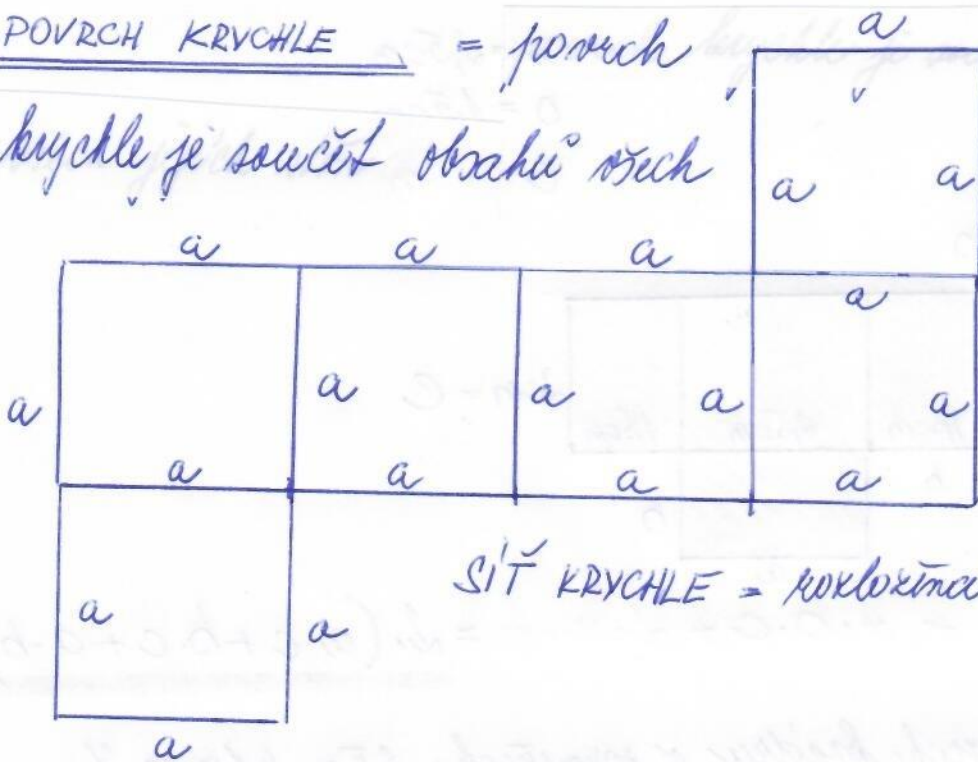 POVRCH KRYCHLE = povrch
krychle je součet obsahů všech
a
a a
a a a a
a a a a a
a a a a
a a
a
SÍŤ KRYCHLE = rozložená